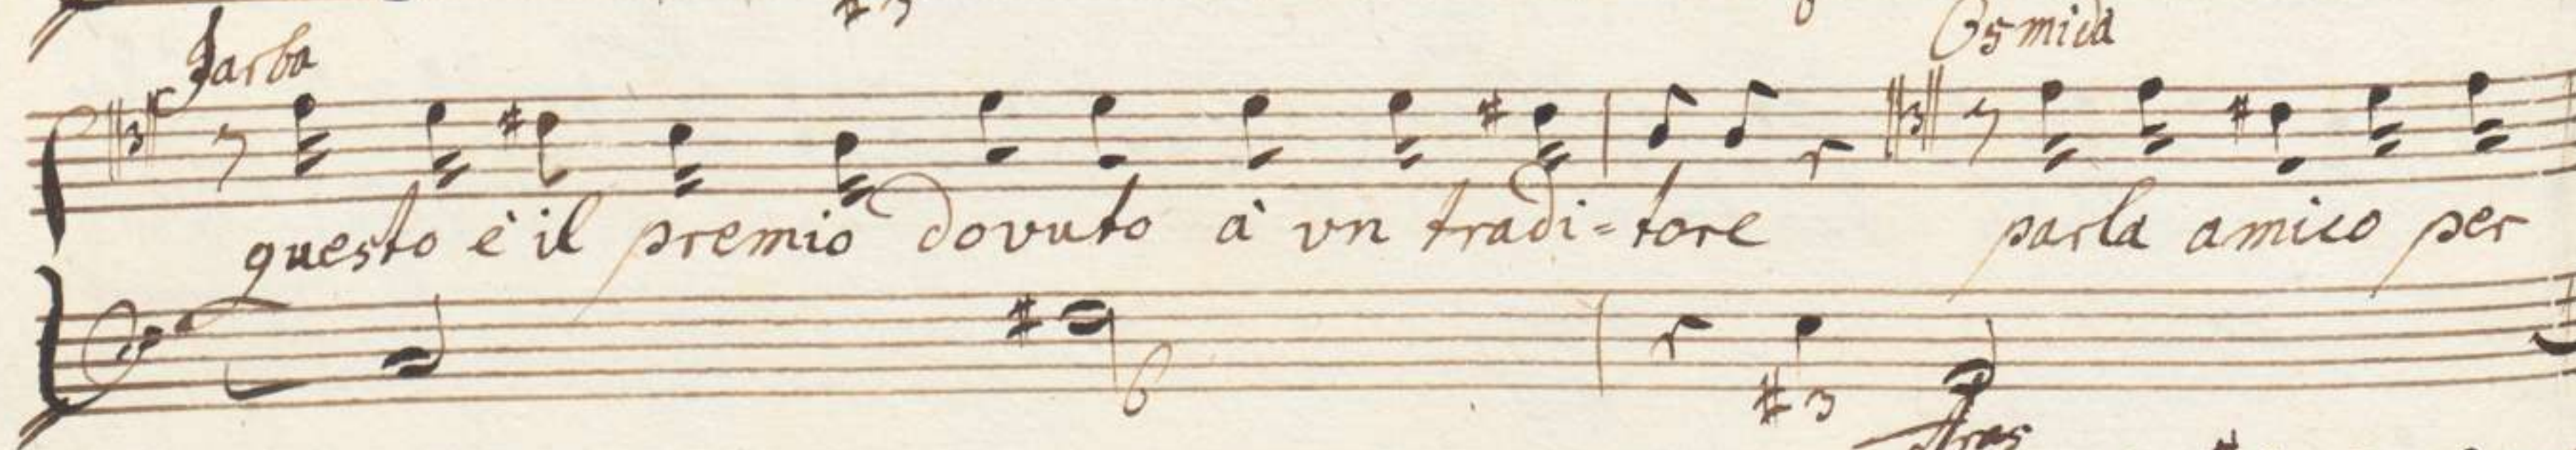 Jarba
Osmida
questo è il premio dovuto à vn tradi=tore parla amico per
6
#3